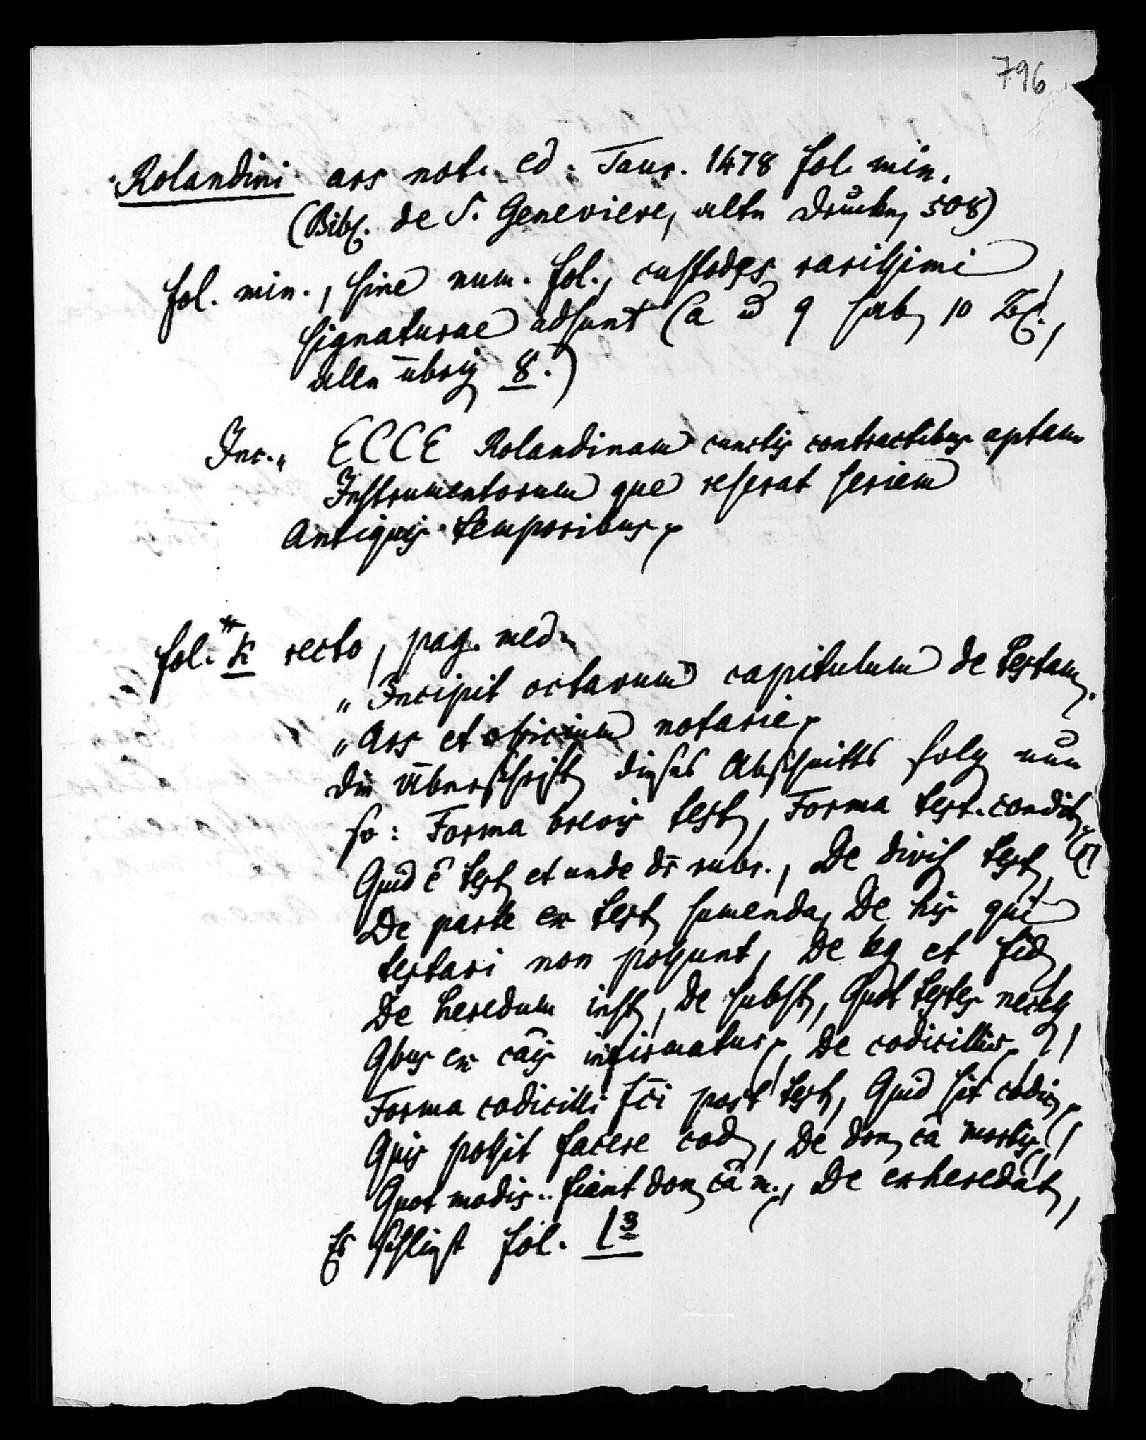 796
Rolandini ars not. ed. Taur. 1478 fol. min.
(Bibl. de S. Genevieve, alte Drucke, 508)
fol. min., sine num. fol., custodes rarissimi,
signaturae adsunt (a u 9 hab 10 Bl.,
alle übrig 8.)
Inc. „ ECCE Rolandinam cunctis contractibus aptam
Instrumentorum que reserat seriem
Antiquis temporibus
fol. k recto, pag. med.
„Incipit octavum capitulum de testam.
„Ars et officium notarie
die Überschrift dieses Abschnitts folg nun
so: Forma brevis test, Forma test. condit
Quid ē test et unde dr̄ subs., De divis test
De parte ex test sumenda, De his qui
testari non possunt, De leg et fid,
De heredum inst, De subst, Quot testes necess,
Qbus ex cāis infirmatur, De codicillis,
Forma codicilli fc̄i post test, Quid sit codic,
Quis possit facere cod, De don cā mortis,
Quot modis .. fient don cā m., De exheredat,
Es schließt fol. l 3